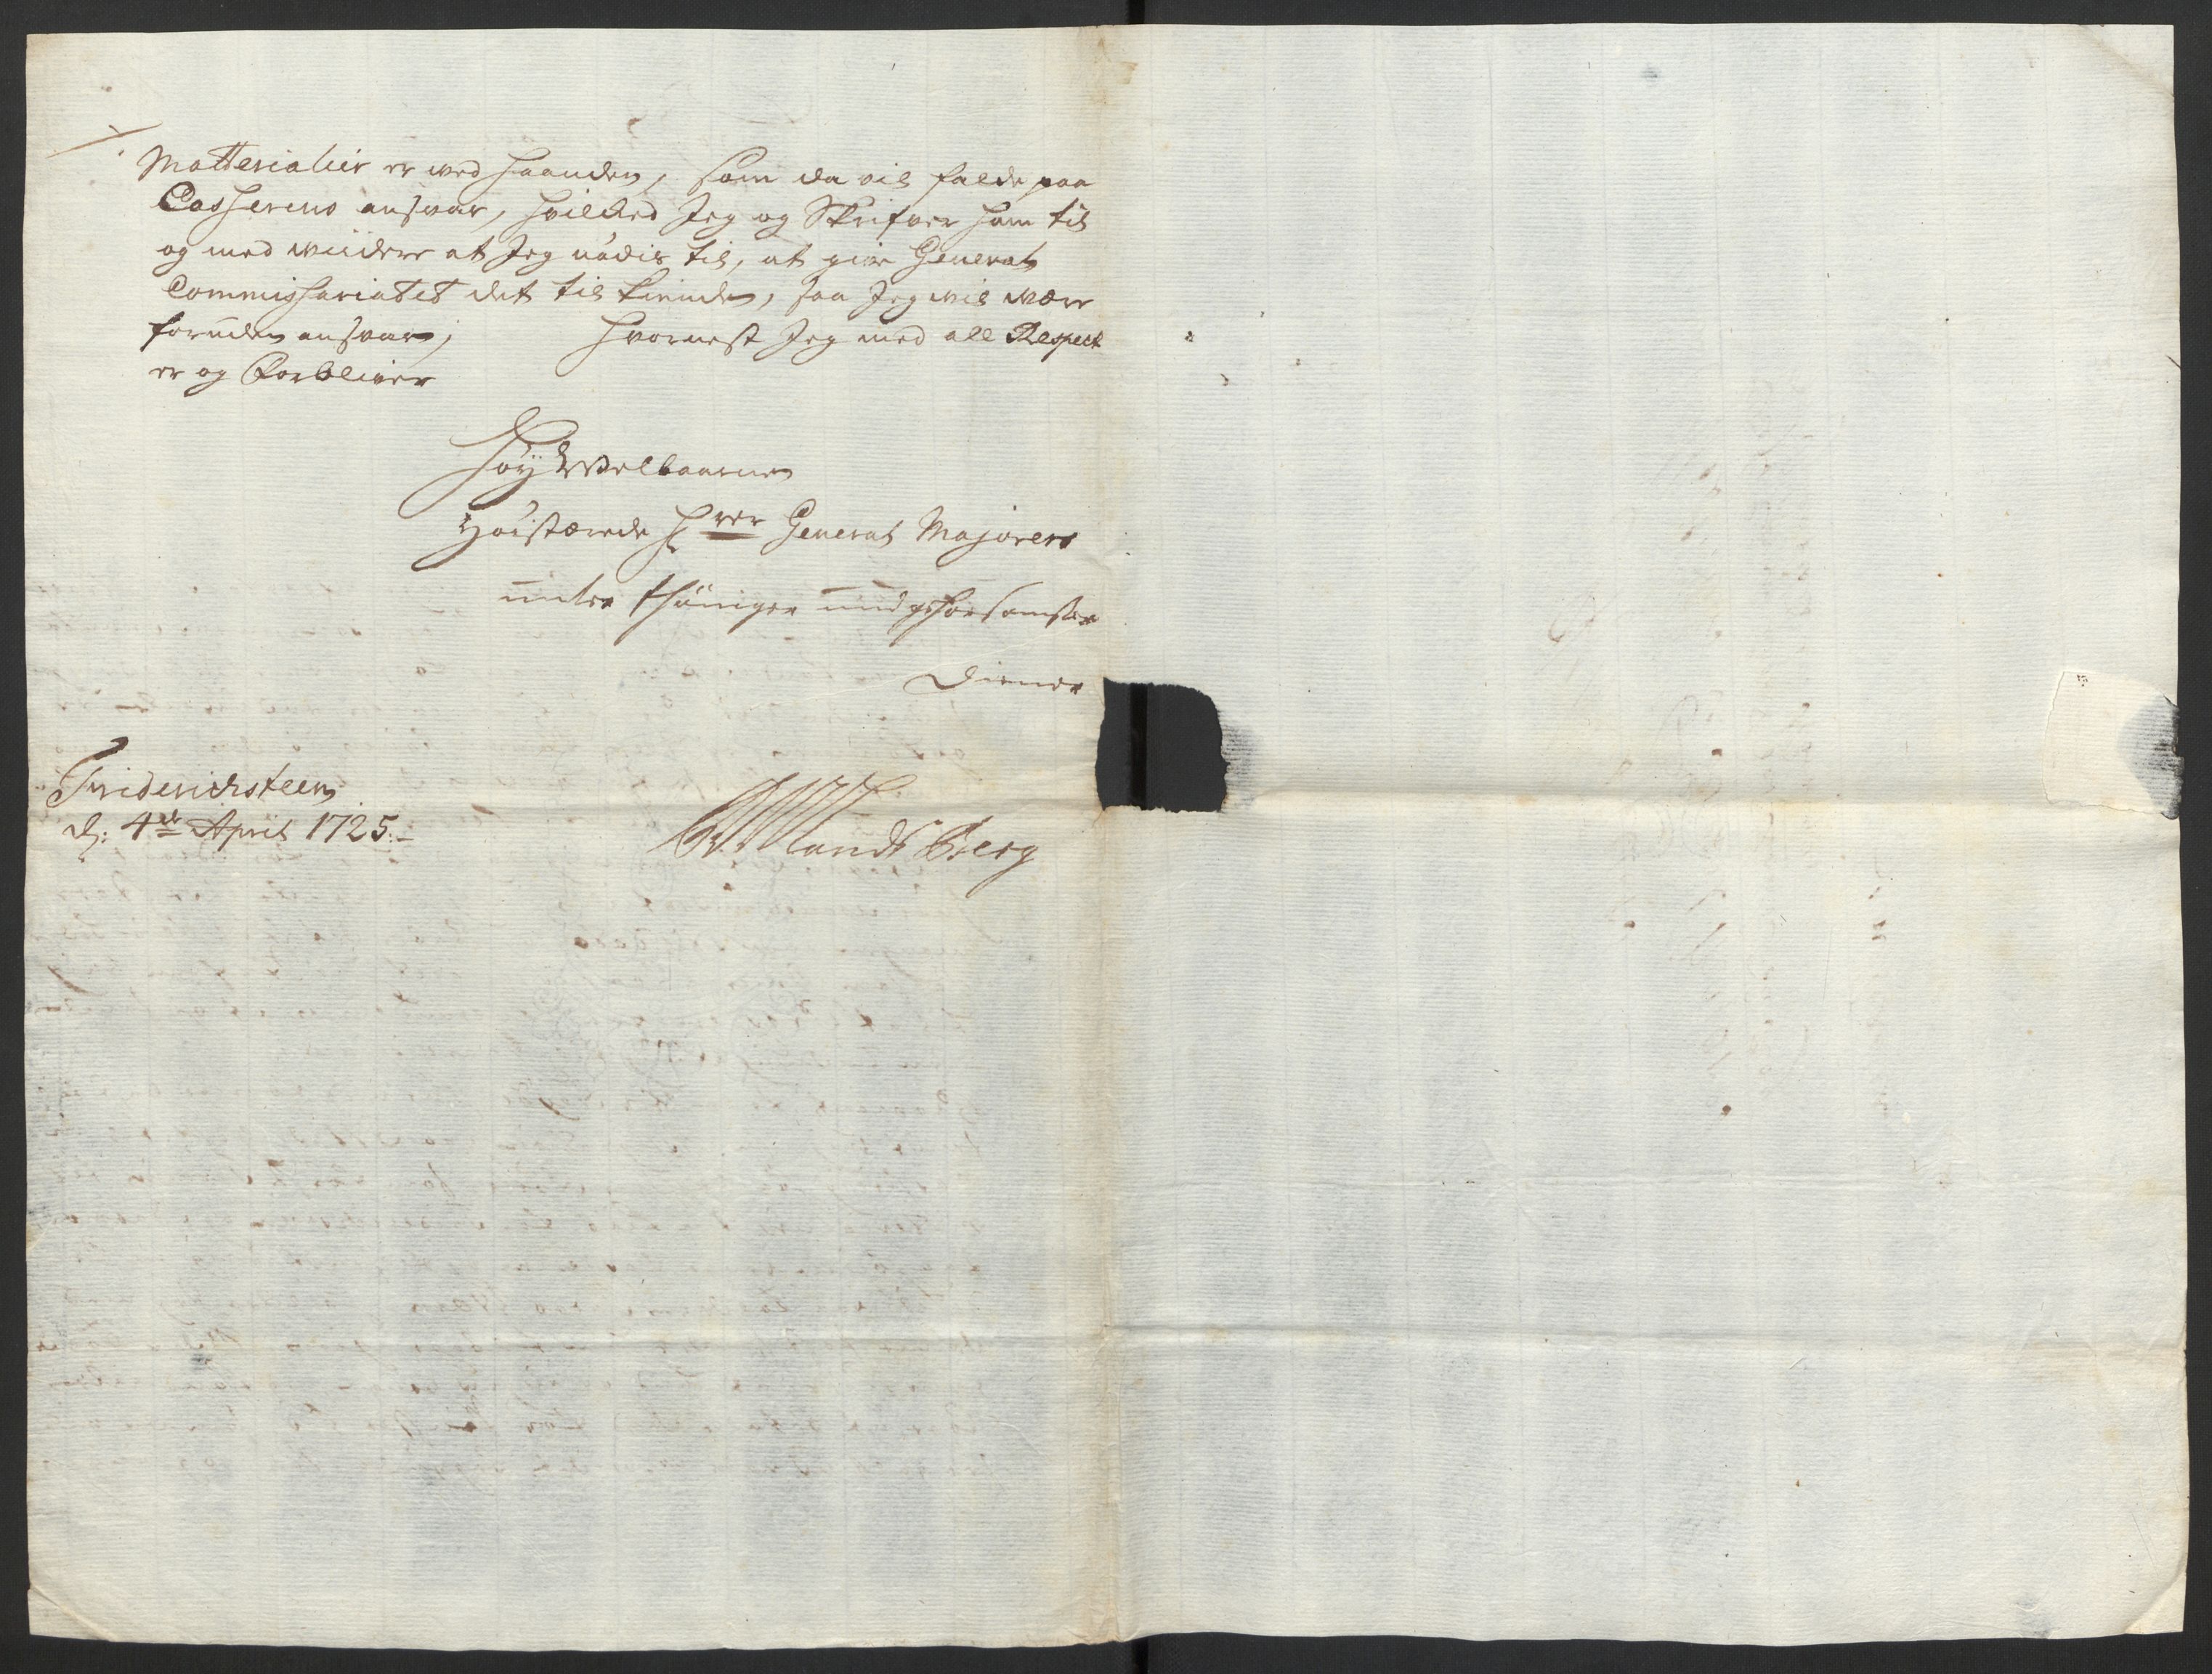 Matterialier er ved haanden, som da vil falde paa
Casserens ansvar, hvilched Jeg og Skrifver ham til
og med viidere at Jeg nødis til, at give General
Commissariatet det til kiende, saa Jeg vil være
foruden ansvar; hvornest Jeg med all Respect
er og Forbliver
Høy Welbaarne
Høistærede Hrer General Majorers
unter thäniger und gehorsamster
Diener
Friderichsteen
d: 4de April 1725.
Landtsberg